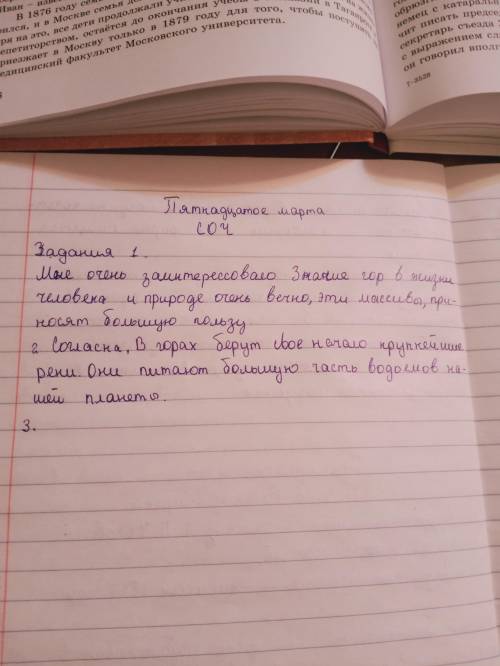 Иван – извес
В 1876 году се
рился, и в Москве семья до
ря на это, все дети продолжали уч
епетиторством, остаётся до окончания учёбы
приезжает в Москву только в 1879 году для того, чтобы поступить
едицинский факультет Московского университета.
в Таганро
обрюзг
немец с катараль
чит писать предсе
секретарь съезда
с выражением сл
он говорил впол
7–3528
Пятнадцатое марта
СОЧ
Задания 1.
Мне очень заинтерессовало Значие гор в жизни
человека и природе очень вечно, эти массивы, при-
носят большую пользу
2 Согласна, В горах берут свое начало крупнейшие
реки. Они питают большую часть водоемов на-
шей планеты.
3.